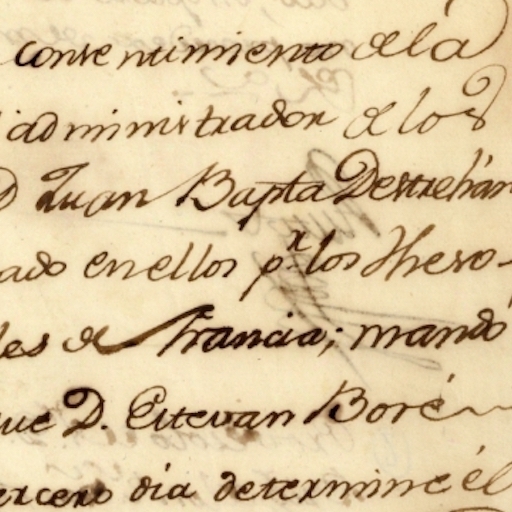 consentimiento de la
administrador de los
D Juan Bapta Destrehan
ado en ellos pr. los theso-
les de francia; mandó
que D. Estevan Boré
tercero dia determine el